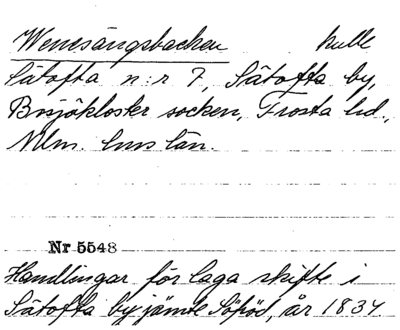 Wenesängsbacken kulle
Sätofta n:r 7, Sätofta by,
Bosjökloster socken, Frosta hd.,
Mlm. hus län.
Nr 5548
Handlingar för laga skifte i
Sätofta by jämte Söröd, år 1834